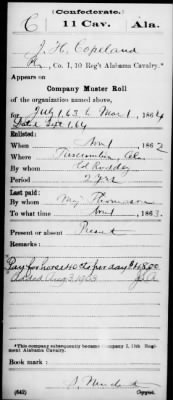 (Confederate.)
C 11 Cav. Ala.
J. H. Copeland
Co. I, 10 Reg't Alabama Cavalry.*
Appears on
Company Muster Roll
of the organization named above,
for July 1, 63 to Mar 1, 1864
Dated Sept 1, 64
Enlisted:
When Nov 1 1862
Where Tuscumbia, Ala.
By whom Roddey
Period 2 yrs
Last paid:
By whom Maj Thomason
To what time Nov 1 1863.
Present or absent Present
Remarks:
Pay for horse 40 cts per day $48.00
*This company subsequently became Company I, 11th Regiment Alabama Cavalry.
Book mark:
(642) Copyist.